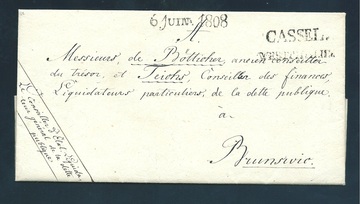 6 JUIN 1808
CASSEL
A
Messieurs, de Bötticher, ancien conseiller
du trésor, et Teichs, Conseiller des finances,
Liquidateurs particuliers, de la dette publique
à
Brunsvic.
Le Conseiller d'Etat, Liquida-
teur général de la dette
publique